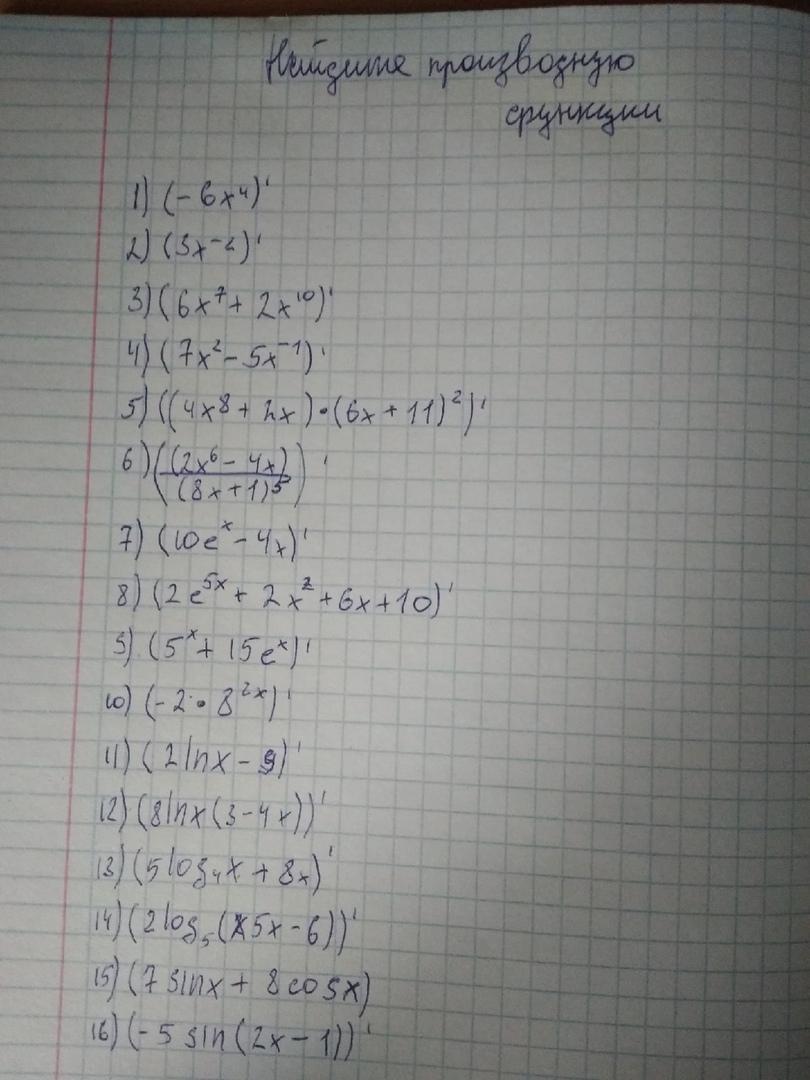 Найдите производную
функции
1) (-6x⁴)'
2) (3x⁻²)'
3) (6x⁷ + 2x¹⁰)'
4) (7x² - 5x⁻¹)'
5) ((4x⁸ + 2x)·(6x + 11)²)'
6) ((2x⁶ - 4x)/(8x+1)⁵)'
7) (10eˣ - 4x)'
8) (2e⁵ˣ + 2x² + 6x + 10)'
9) (5ˣ + 15eˣ)'
10) (-2·8²ˣ)'
11) (2lnx - 9)'
12) (8lnx(3-4x))'
13) (5log₄x + 8x)'
14) (2log₅(5x-6))'
15) (7sinx + 8cosx)
16) (-5sin(2x-1))'